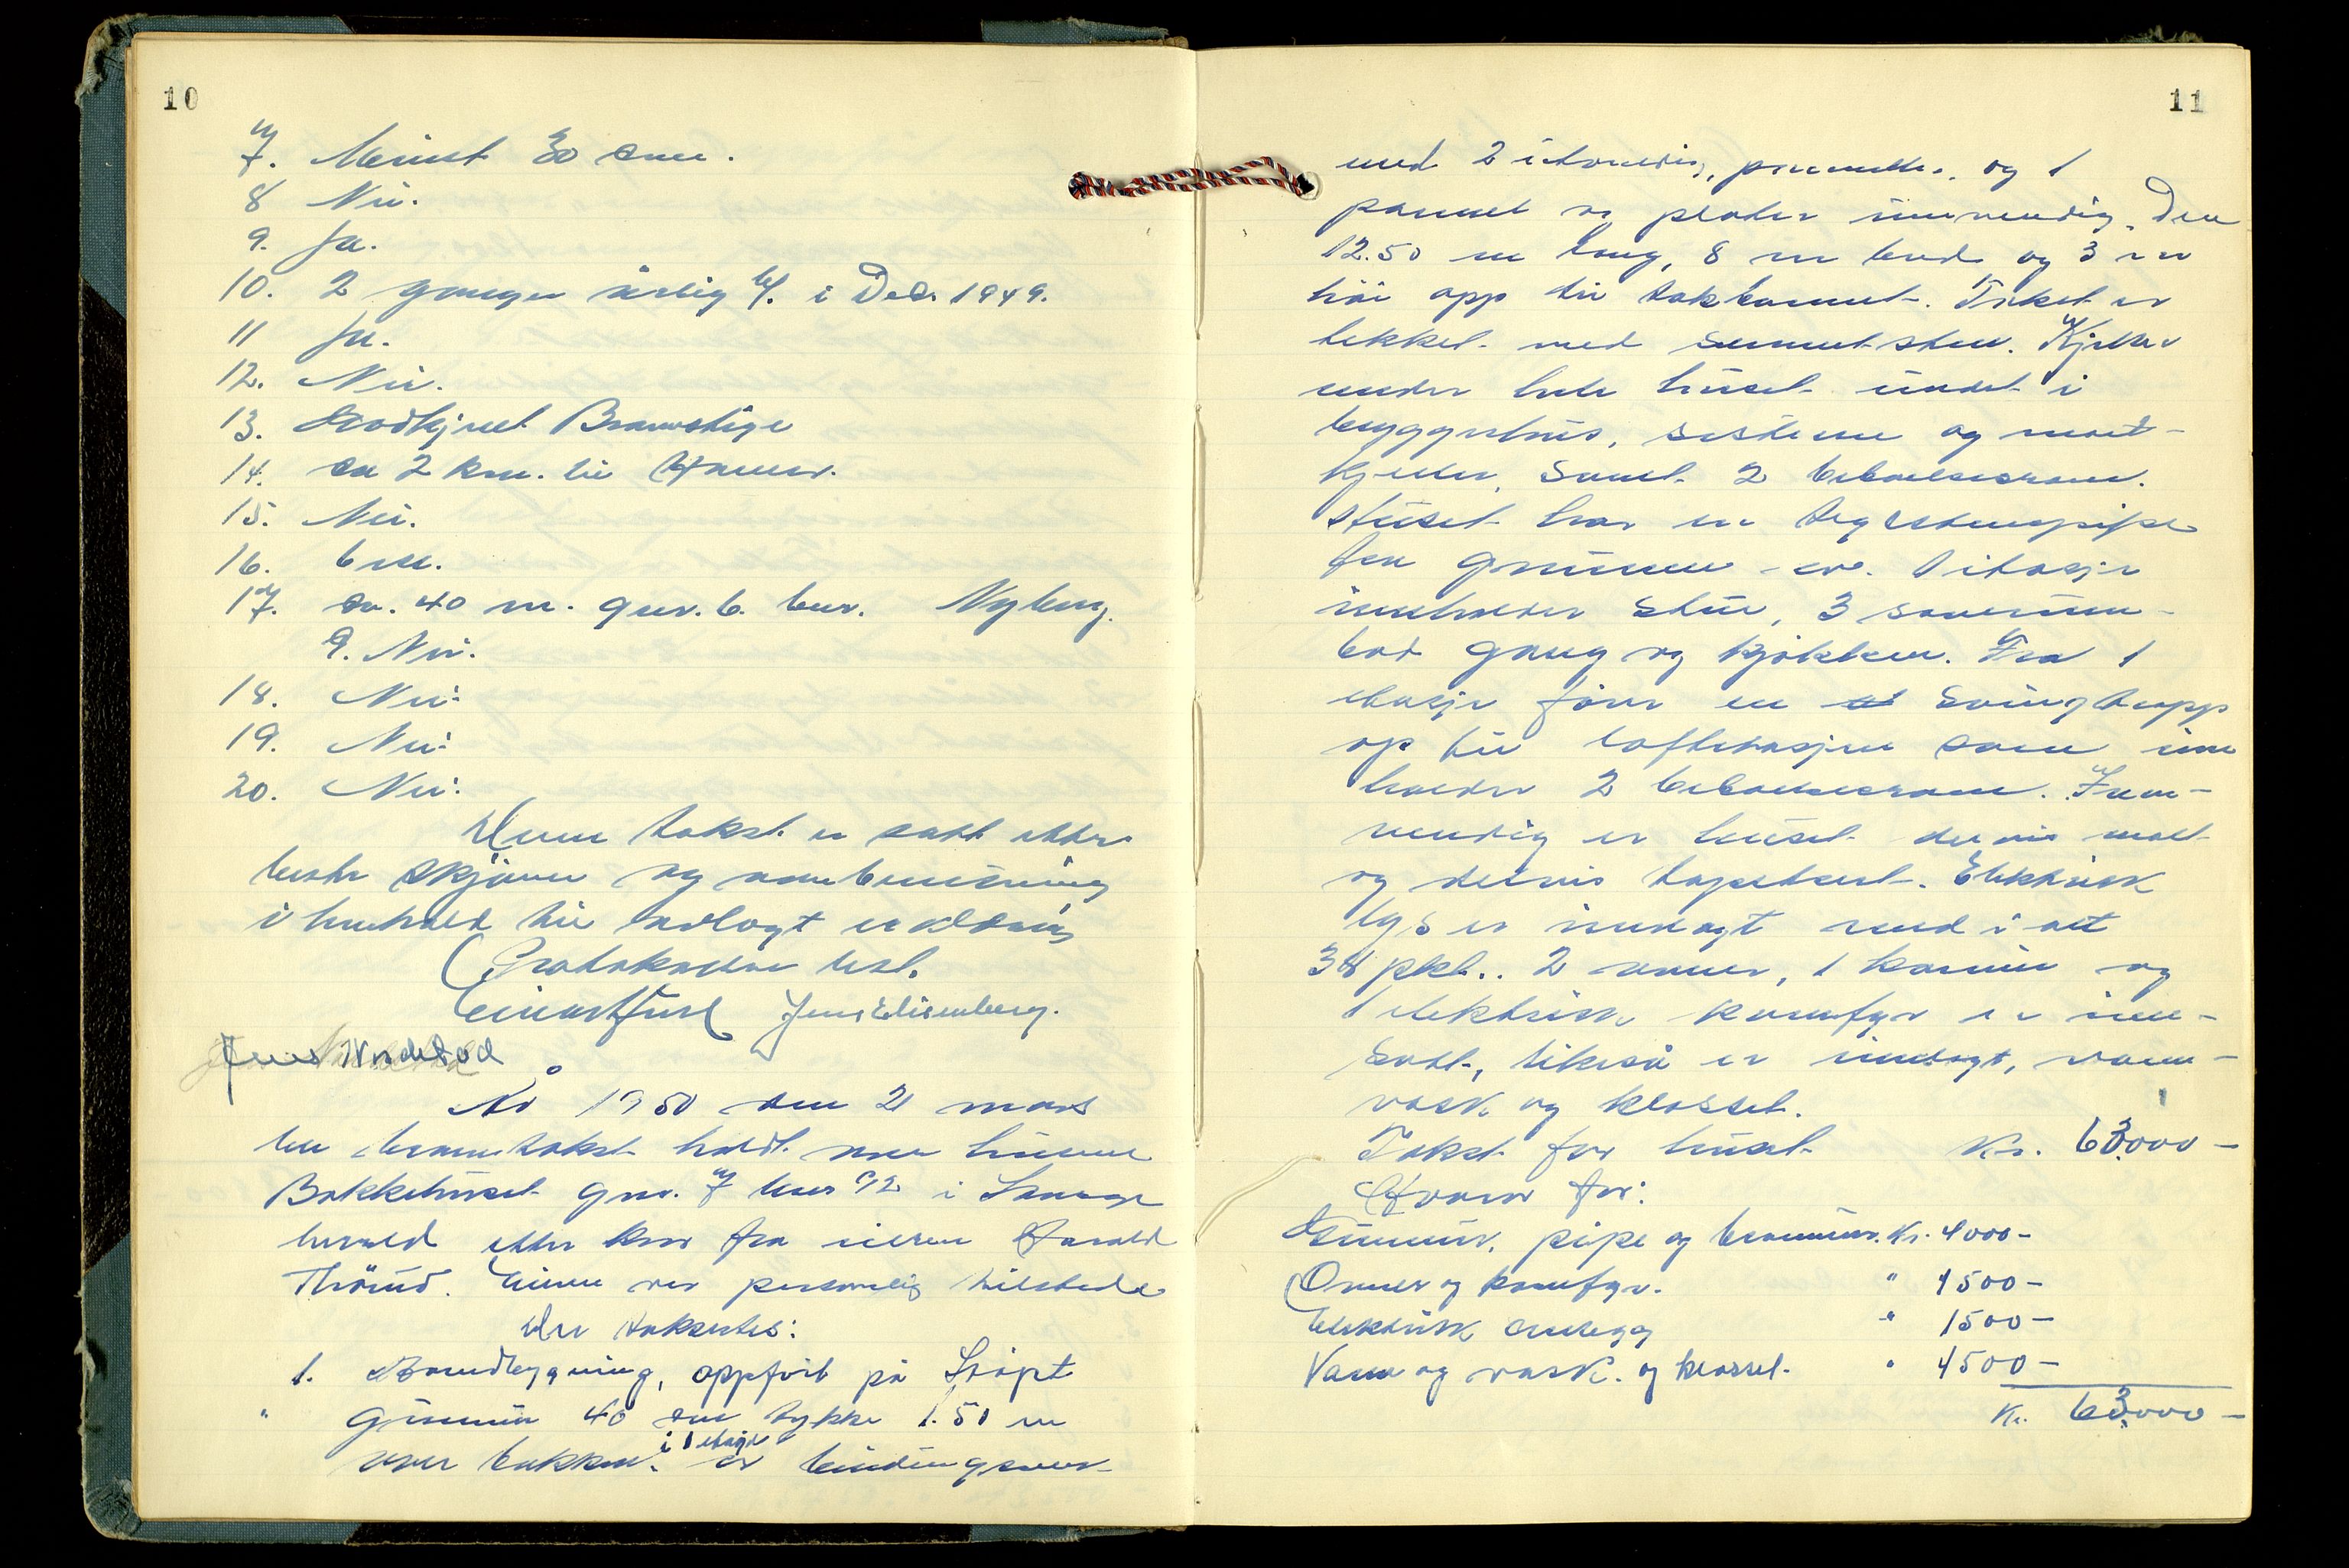 10
7. Minst 30 cm.
8 Nei.
9. Ja.
10. 2 ganger årlig bl. i Des. 1949.
11 Ja.
12. Nei.
13. Godkjent Brannstige
14. ca 2 km. til
15. Nei.
16.
17. ca. 40 m. gnr. 6. bnr. Nyberg.
9. Nei.
18. Nei.
19. Nei.
20. Nei.
Denne takst er satt etter
beste skjønn og
i henhold til avlagt erklæring
Protokollen lest.
Einar Furl Jens Elisenberg.
Jens
År 1950 den 21 mars
ble branntakst holdt over husene
Bakkehuset gnr. 7 bnr 92 i
herred etter krav fra eieren Harald
Thörud. Eieren var personlig tilstede
Der taksertes:
1. Våndbygning, oppført på støpt
" grunnmur 40 cm tykke 1.50 m
over bakken. i 1 etage er bindingsverk
11
med 2 utvendig, panneller, og 1
pannel og plater innvendig. Den
12.50 m lang, 8 m bred og 3 m
høi opp til takkannet. Taket er
tekket med sement sten. Kjeller
under hele huset inndet i
bryggerhus, sisterne og mat-
kjeller, samt 2 beboelsesrom.
Huset har en teglstenspipe
fra grunnen av. 1 etasje
inneholder stue, 3 soverum
bad gang og kjøkken. Fra 1
etasje fører en svingtrapp
op til loftetasjen som inne
holder 2 beboelsesrom. Inn-
vendig er huset delvis malt
og delvis tapetsert. Elektrisk
lys er innlagt med i alt
38 pkt.. 2 ovner, 1 kamin og
1 elektrisk komfyr er inn-
satt, likeså er innlagt, vann-
vask og klosset.
Takst for huset Kr. 63.000 -
Hvorav for:
Grunnmur, pipe og brannmur. Kr. 4000 -
Ovner og komfyr. " 1500 -
Elektrisk anlegg " 1500 -
Vann og vask. og klosset. " 4500 -
Kr. 63.000 -